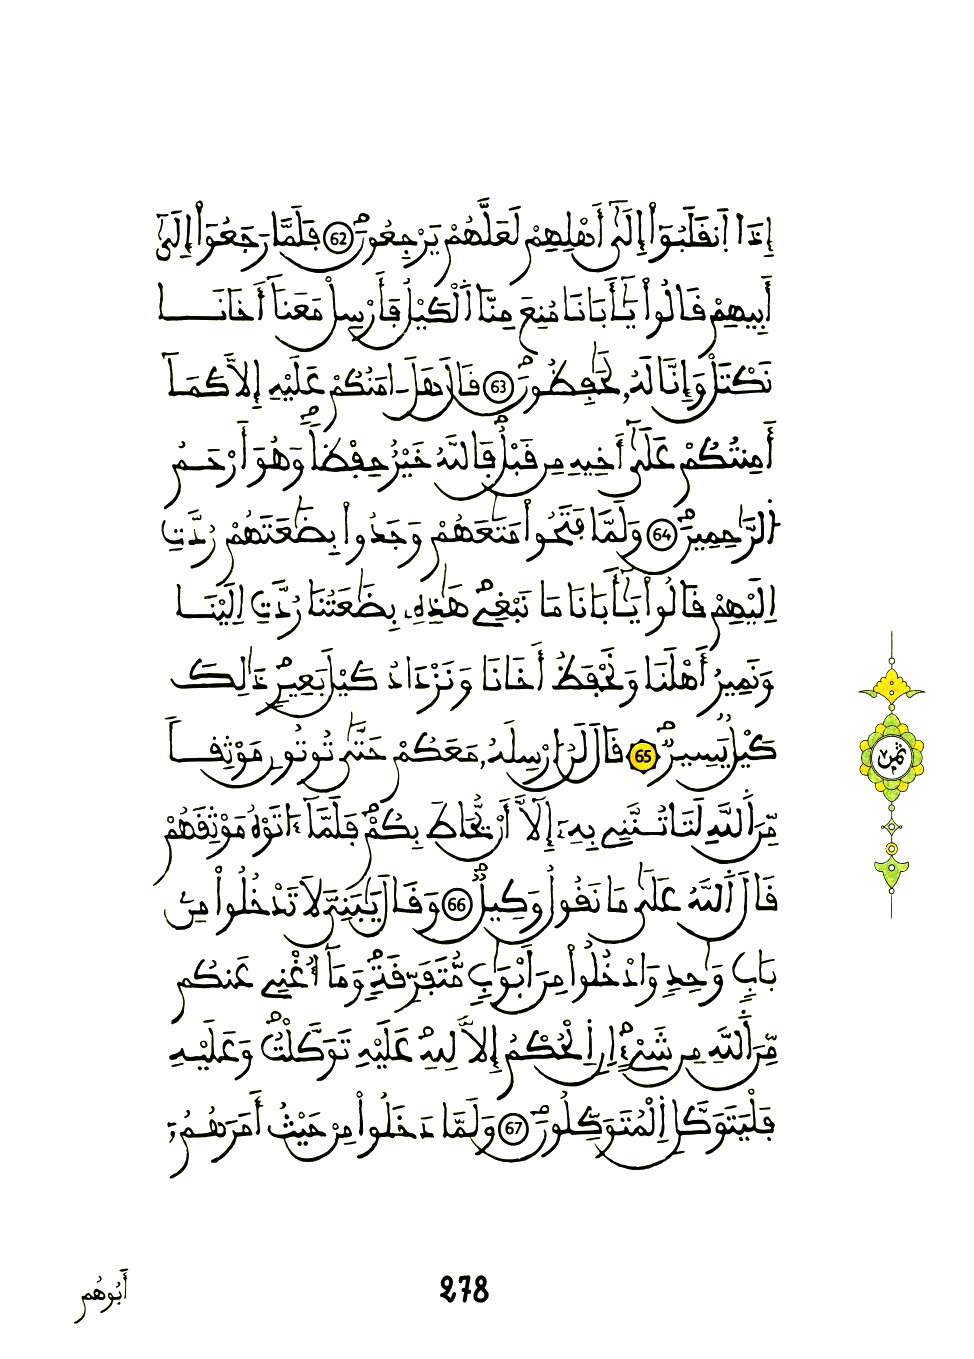 إِذَا اَنفَلَبُوٓاْ إِلَىٰٓ أَهْلِهِمْ لَعَلَّهُمْ يَرْجِعُونَ 62 فَلَمَّا رَجَعُوٓاْ إِلَىٰٓ
أَبِيهِمْ قَالُواْ يَٰٓأَبَانَا مُنِعَ مِنَّا اَلْكَيْلُ فَأَرْسِلْ مَعَنَآ أَخَانَا
نَكْتَلْ وَإِنَّا لَهُۥ لَحَٰفِظُونَ 63 قَالَ هَلَ اٰمَنُكُمْ عَلَيْهِ إِلَّا كَمَآ
أَمِنتُكُمْ عَلَىٰٓ أَخِيهِ مِن قَبْلُ فَاللَّهُ خَيْرٌ حِفْظاً وَهُوَ أَرْحَمُ
اُلرَّٰحِمِينَ 64 وَلَمَّا فَتَحُواْ مَتَٰعَهُمْ وَجَدُواْ بِضَٰعَتَهُمْ رُدَّتِ
اِلَيْهِمْ قَالُواْ يَٰٓأَبَانَا مَا نَبْغِے هَٰذِهِۦ بِضَٰعَتُنَا رُدَّتِ اِلَيْنَا
وَنَمِيرُ أَهْلَنَا وَنَحْفَظُ أَخَانَا وَنَزْدَادُ كَيْلَ بَعِيرٍ ذَٰلِكَ
كَيْلٌ يَسِيرٌ 65 قَالَ لَنُ ارْسِلَهُۥ مَعَكُمْ حَتَّىٰ تُوتُونِ مَوْثِقاً
مِّنَ اَللَّهِ لَتَاتُنَّنِے بِهِۦٓ إِلَّآ أَنْ يُّحَاطَ بِكُمْ فَلَمَّآ ءَاتَوْهُ مَوْثِقَهُمْ
قَالَ اَللَّهُ عَلَىٰ مَا نَقُولُ وَكِيلٌ 66 وَقَالَ يَٰبَنِيَّ لَا تَدْخُلُواْ مِنۢ
بَابٍ وَٰحِدٍ وَادْخُلُواْ مِنَ اَبْوَٰبٍ مُّتَفَرِّقَةٍ وَمَآ أُغْنِے عَنكُم
مِّنَ اَللَّهِ مِن شَےْءٍ اِنِ اِلْحُكْمُ إِلَّا لِلهِ عَلَيْهِ تَوَكَّلْتُ وَعَلَيْهِ
فَلْيَتَوَكَّلِ اِلْمُتَوَكِّلُونَ 67 وَلَمَّا دَخَلُواْ مِنْ حَيْثُ أَمَرَهُمُۥٓ
ثمن
أَبُوهُم
278